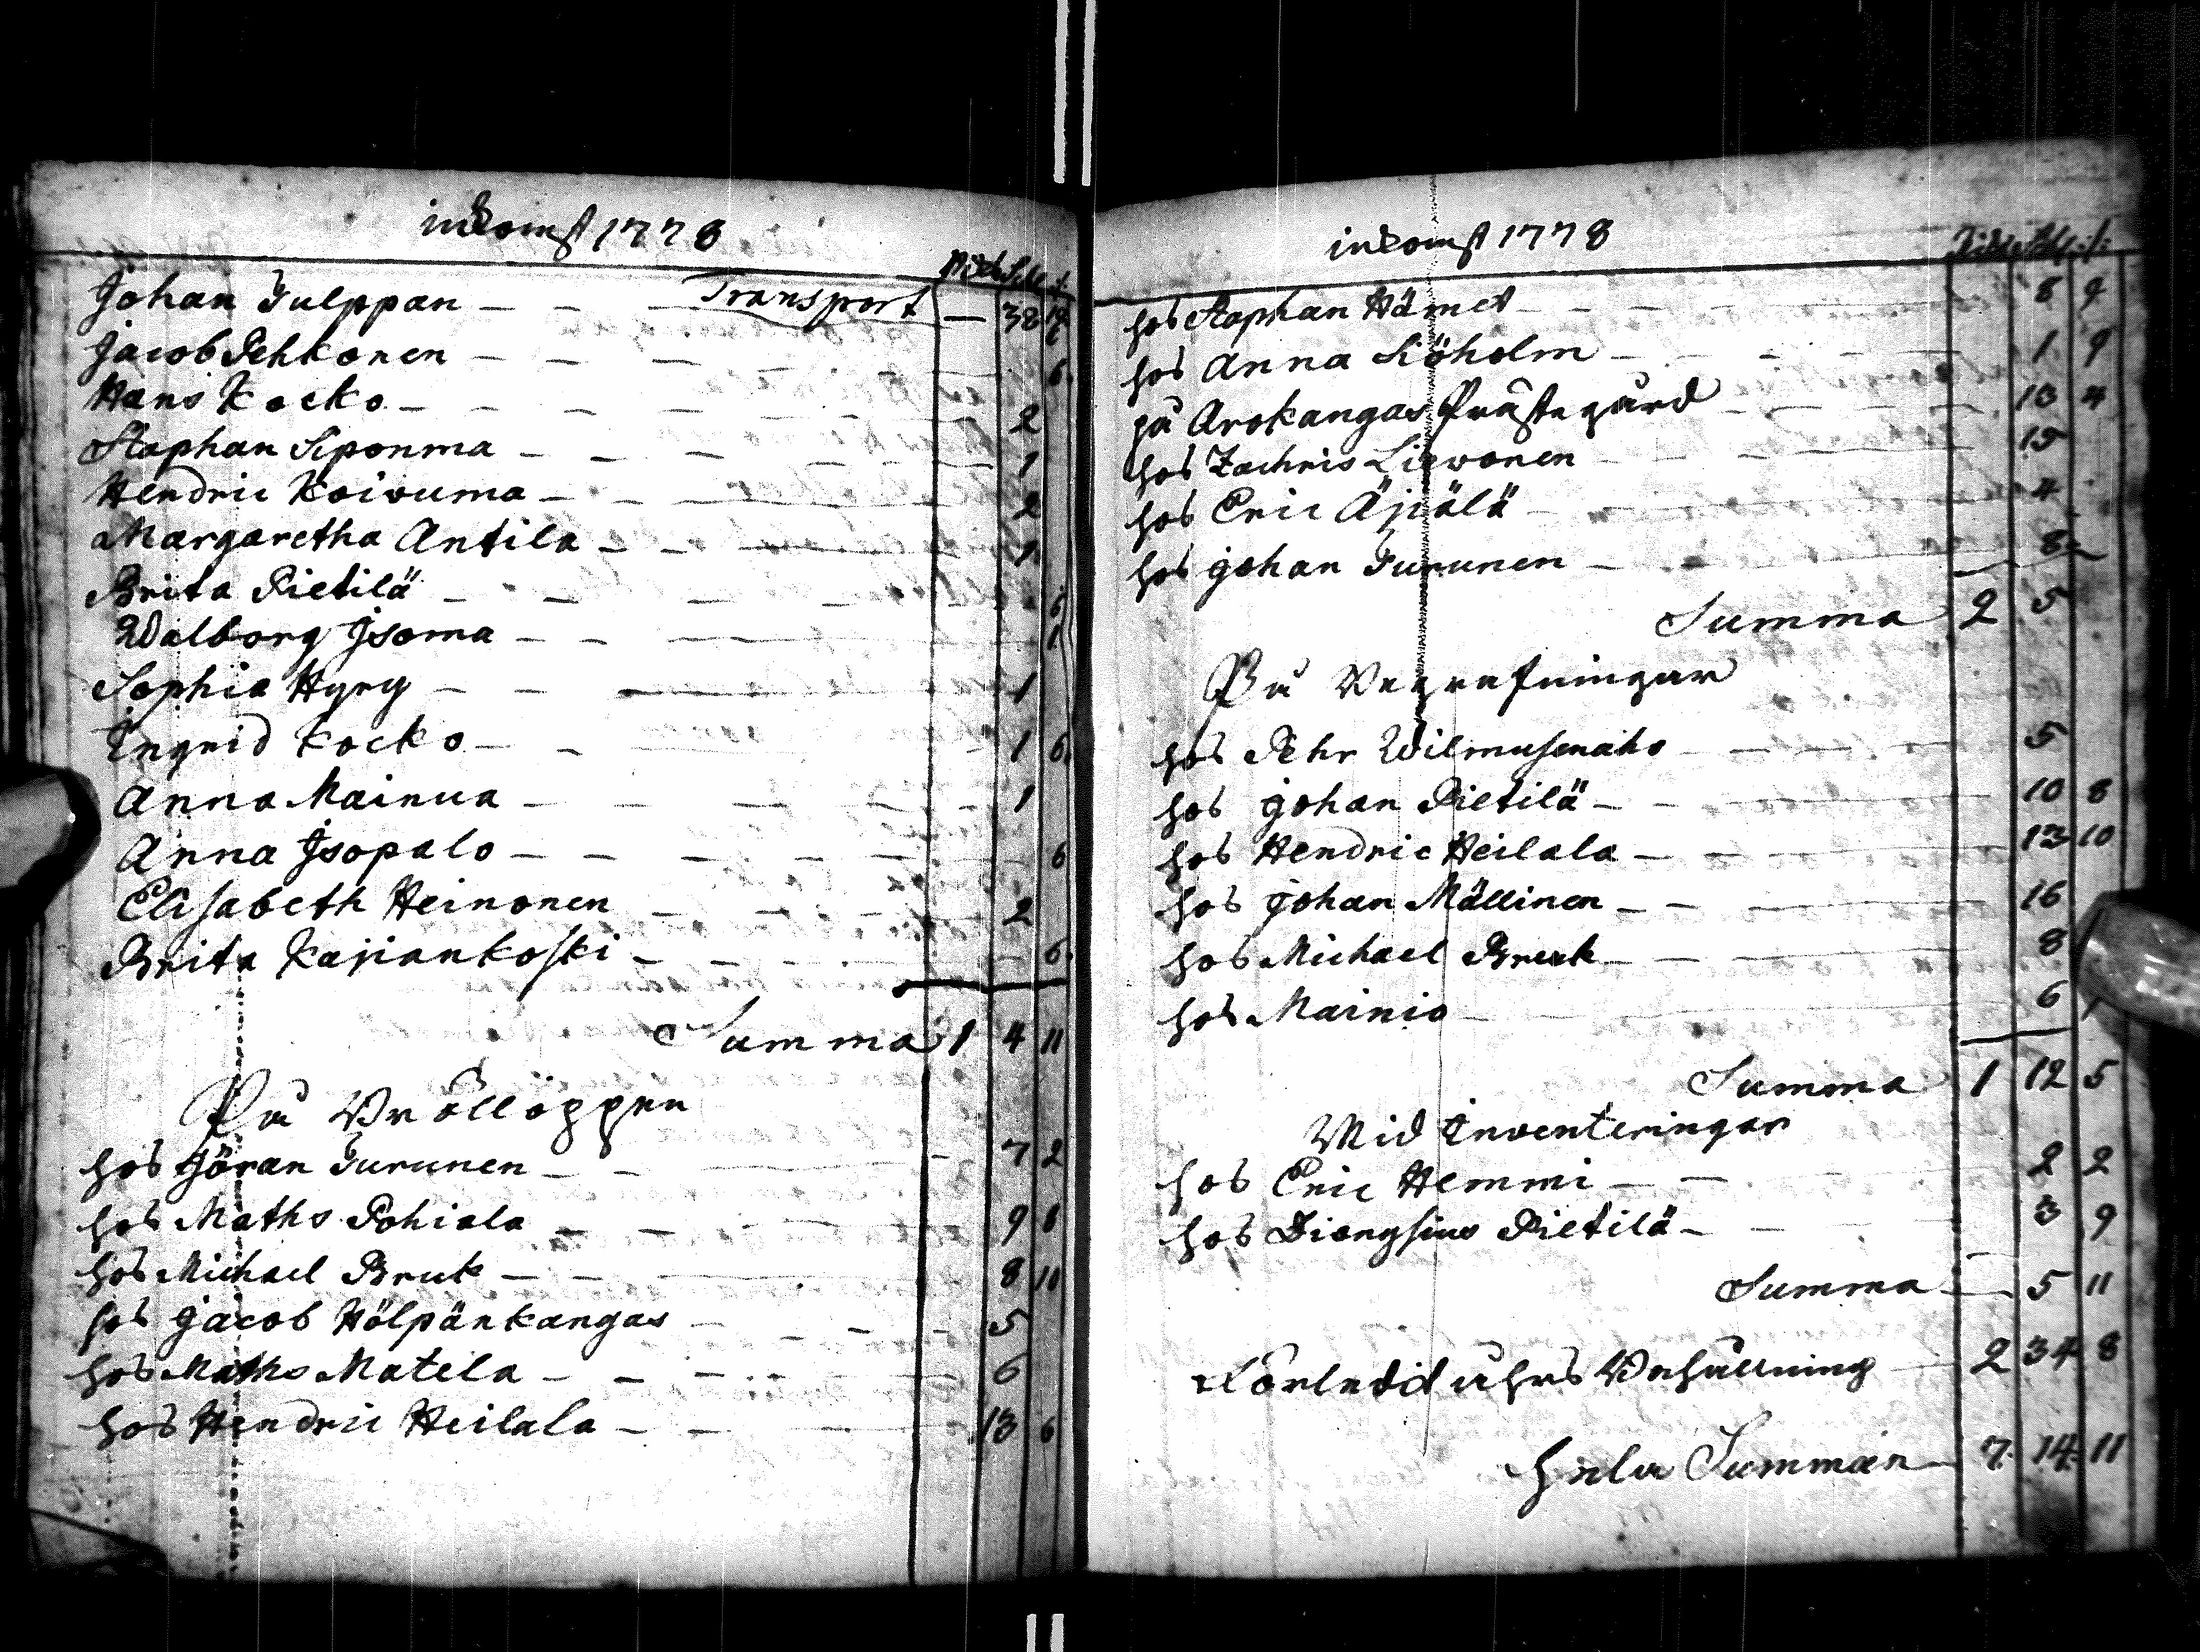 inkomst 1778
Riksd. Sk. f.
Johan Tulppan — — Transport — 38
Jacob Pehkonen — — 6.
Hans Kocko — — 2
Staphan Siponma — — 1
Hendric Koivuma — — 2
Margaretha Antila — — 1
Brita Pietilä — — 6
Walborg Isoma — — 1
Sophia Hyry — — 1
Ingrid Kocko — — 1 6.
Anna Mainua — — 1
Anna Isopalo — — 6
Elisabeth Heinonen — — 2
Brita Kajiankoski — — 6.
Summa 1 4 11
På Bröllöppen
hos Jöran Turunen — — 7 2
hos Maths Pohiala — — 9 6
hos Michael Bruk — — 8 10
hos Jacob Hölpänkangas — — 5
hos Maths Matela — — 6
hos Hendric Heilala — — 13 6
inkomst 1778
hos Staphan Hämet — — 8 9
hos Anna Siöholm — — 1 9
på Arokangas Prästegård — — 13 4
hos Zachris Liewonen — — 15
hos Eric Äjiälä — — 4
hos Johan Turunen — — 8
Summa 2 5
På Begrafningar
hos Pehr Wilmusenaho — — 5
hos Johan Pietilä — — 10 8
hos Hendric Heilala — — 13 10
hos Johan Mällinen — — 16
hos Michael Bruk — — 8
hos Mainio — — 6
Summa 1 12 5
Wid Inventeringar
hos Eric Hemmi — — 2 2
hos Dionysius Pietilä — — 3 9
Summa — 5 11
Förledit åhrs Behållning — 2 34 8
Hela Summan 7. 14. 11